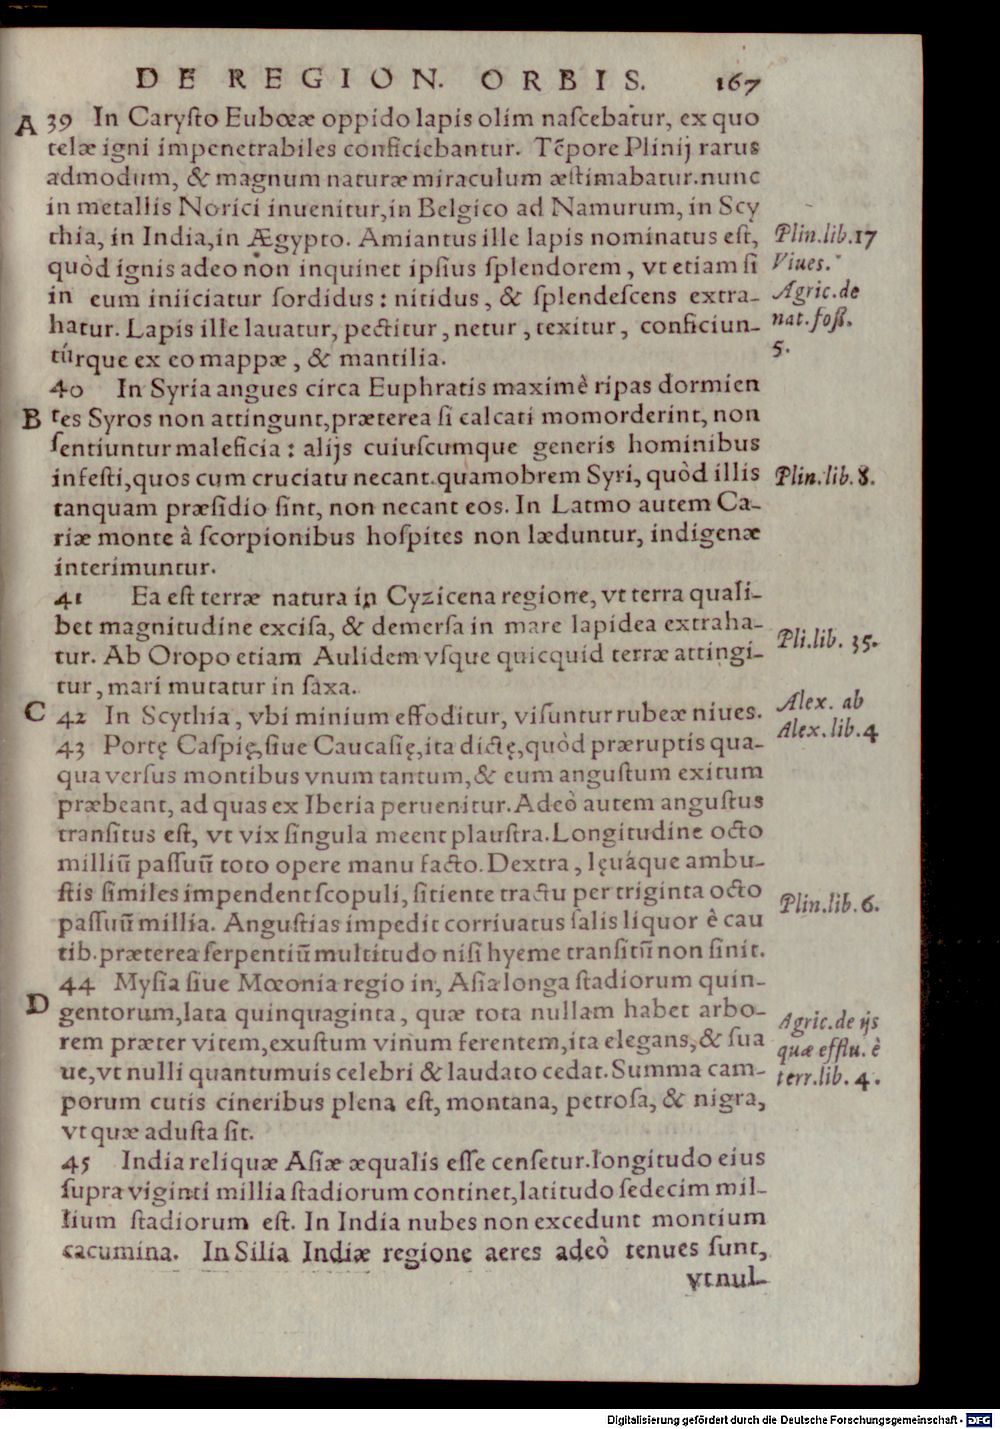 DE REGION. ORBIS. 167
A 39 In Carysto Eubœæ oppido lapis olim nascebatur, ex quo
telæ igni impenetrabiles conficiebantur. Tẽpore Plinij rarus
admodum, & magnum naturæ miraculum æstimabatur. nunc
in metallis Norici inuenitur, in Belgico ad Namurum, in Scy
thia, in India, in Ægypto. Amiantus ille lapis nominatus est,
Plin. lib. 17
quòd ignis adeo non inquinet ipsius splendorem, vt etiam si
Viues.
in eum iniiciatur sordidus: nitidus, & splendescens extra-
Agric. de
hatur. Lapis ille lauatur, pectitur, netur, texitur, conficiun-
nat. foss.
túrque ex eo mappæ, & mantilia.
5.
40 In Syria angues circa Euphratis maximè ripas dormien
B tes Syros non attingunt, præterea si calcati momorderint, non
sentiuntur maleficia: alijs cuiuscumque generis hominibus
infesti, quos cum cruciatu necant. quamobrem Syri, quòd illis
Plin. lib. 8.
tanquam præsidio sint, non necant eos. In Latmo autem Ca-
riæ monte à scorpionibus hospites non læduntur, indigenæ
interimuntur.
41 Ea est terræ natura in Cyzicena regione, vt terra quali-
bet magnitudine excisa, & demersa in mare lapidea extraha-
Pli. lib. 35.
tur. Ab Oropo etiam Aulidem vsque quicquid terræ attingi-
tur, mari mutatur in saxa.
Alex. ab
C 42 In Scythia, vbi minium effoditur, visuntur rubeæ niues.
Alex. lib. 4
43 Portę Caspię, siue Caucasię, ita dictę, quòd præruptis qua-
qua versus montibus vnum tantum, & eum angustum exitum
præbeant, ad quas ex Iberia peruenitur. Adeò autem angustus
transitus est, vt vix singula meent plaustra. Longitudine octo
milliũ passuũ toto opere manu facto. Dextra, lęuáque ambu-
stis similes impendent scopuli, sitiente tractu per triginta octo
Plin. lib. 6.
passuũ millia. Angustias impedit corriuatus salis liquor è cau
tib. præterea serpentiũ multitudo nisi hyeme transitũ non sinit.
44 Mysia siue Mœonia regio in, Asia longa stadiorum quin-
D gentorum, lata quinquaginta, quæ tota nullam habet arbo-
Agric. de ijs
rem præter vitem, exustum vinum ferentem, ita elegans, & sua
quæ efflu. è
ue, vt nulli quantumuis celebri & laudato cedat. Summa cam-
terr. lib. 4.
porum cutis cineribus plena est, montana, petrosa, & nigra,
vt quæ adusta sit.
45 India reliquæ Asiæ æqualis esse censetur. longitudo eius
supra viginti millia stadiorum continet, latitudo sedecim mil-
lium stadiorum est. In India nubes non excedunt montium
cacumina. In Silia Indiæ regione aeres adeò tenues sunt,
vt nul-
Digitalisierung gefördert durch die Deutsche Forschungsgemeinschaft - DFG